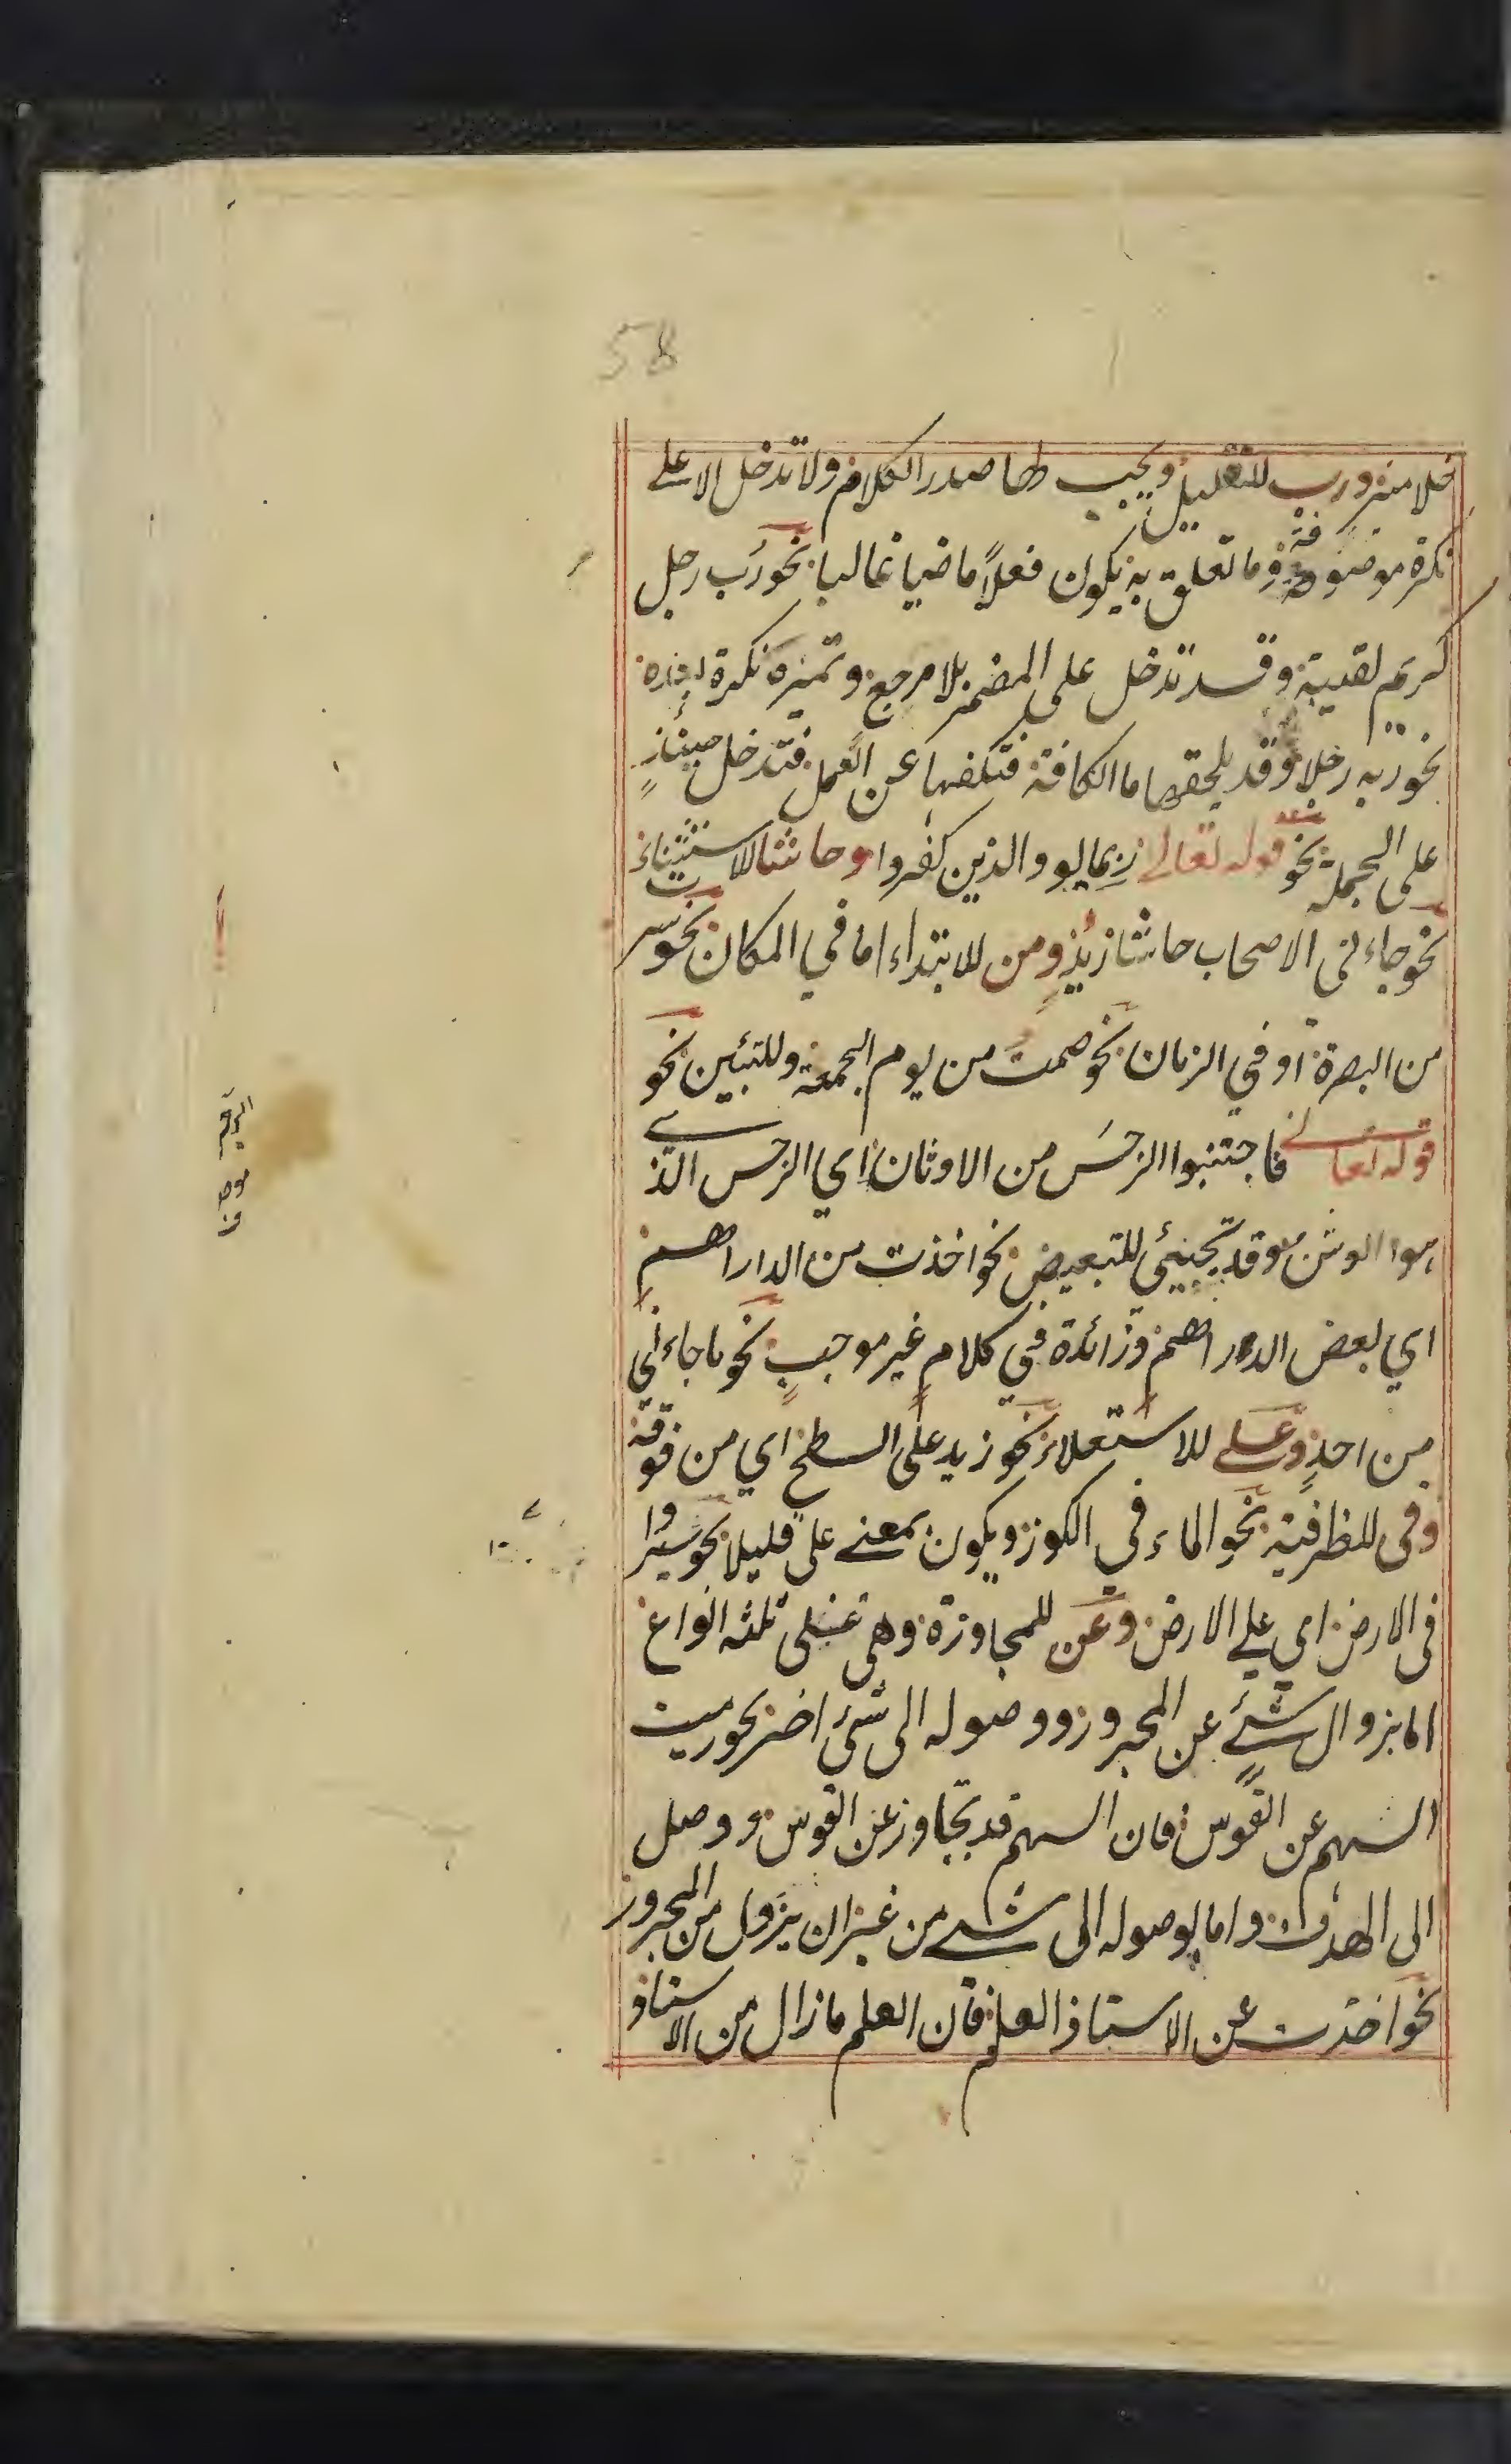 58
خلا منه ورب للتقليل ويجب لها صدر الكلام ولا تدخل الا على
نكرة موصوفة وما تعلق به يكون فعلاً ماضيا غالبا نحو رُب رجل
كريم لقيته وقد تدخل على المضمر بلا مرجع وتميزه نكرة
نحو ربه رجلا وقد يلحقها ما الكافة فتكفها عن العمل فتدخل حينئذٍ
على الجملة نحو قوله تعالى ربما يود الذين كفروا وحاشا للاستثناء
نحو جاءنى الاصحاب حاشا زيدٍ ومن للابتداء اما في المكان نحو سرت
من البصرة او في الزمان نحو صمت من يوم الجمعة وللتبئين نحو
قوله تعالى فاجتنبوا الرجسَ من الاوثان اي الرجس الذى
هوا الوثن وقد تجيئى للتبعيض نحو اخذت من الداراهم
اي بعض الدراهم وزائدة في كلامٍ غير موجبٍ نحو ما جاءنى
من احدٍ وعلى للاستعلاء نحو زيد على السطح اي من فوقه
وفى للظرفية نحو الماء فى الكوز ويكون بمعنے على قليلا نحو سيروا
فى الارض اي على الارض وعن للمجاوزة وهى على ثلثه انواع
اما بزوال شئے عن المجرور ووصوله الى شئ اخر نحو رميت
السهم عن القوس فان السهم قد تجاوز عن القوس ووصل
الى الهدف واما لوصوله الى شئے من غير ان يزول من المجرور
نحو اخذت عن الاستاذ العلم فان العلم ما زال من الاستاذ